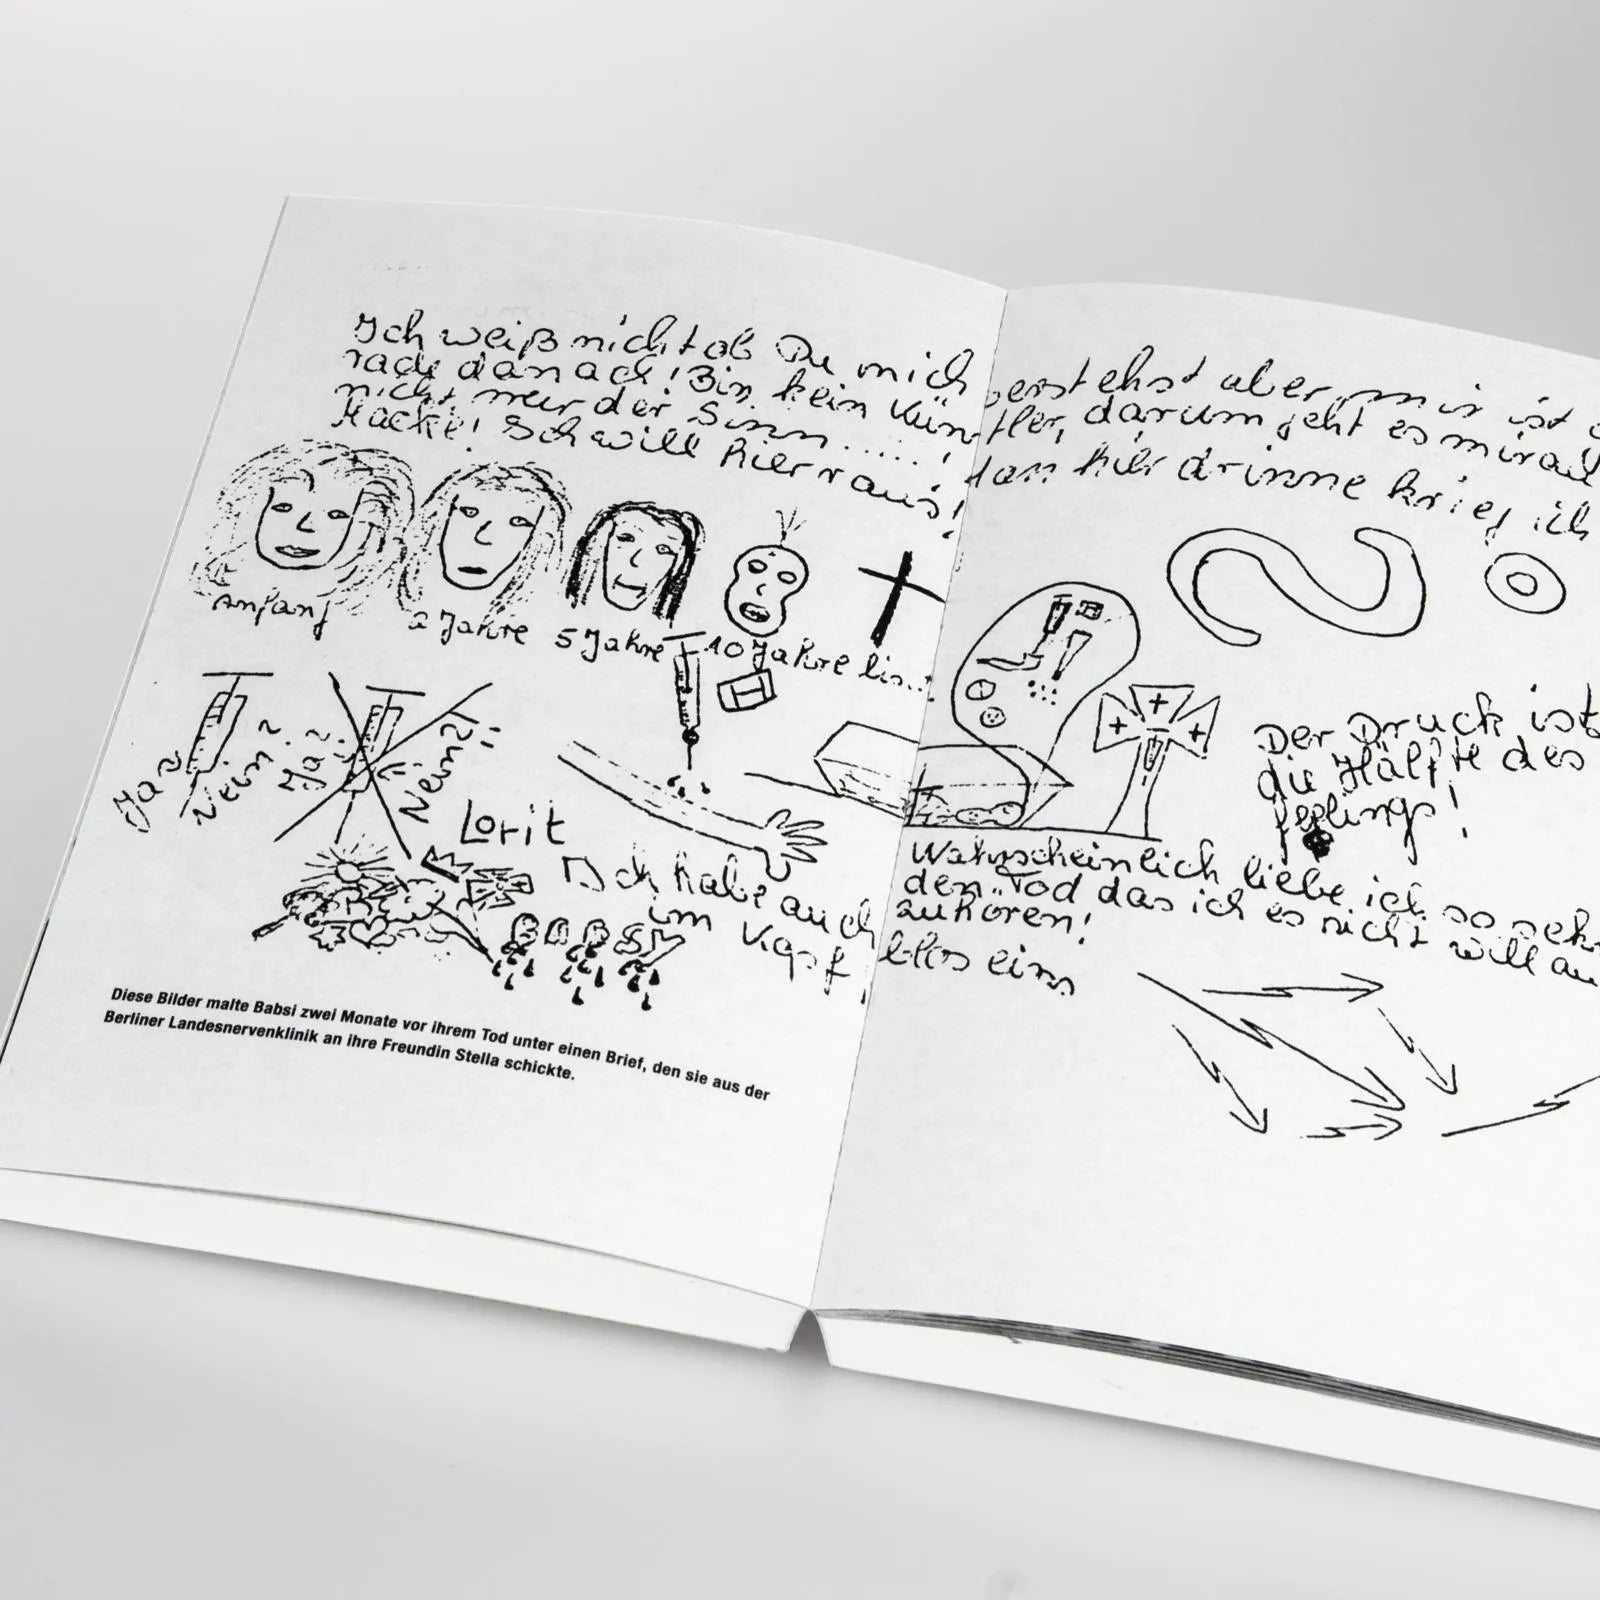 Ich weiß nicht ob Du mich verstehst aber mir ist
rade danach! Bin kein Künstler, darum geht es mir
nicht nur der Sinn.....!
Kacke! Ich will hier raus! hier drinne krieg ich
Anfang
2 Jahre
5 Jahre
10 Jahre
Ja?
Nein?
Ja?
Nein?!
Lorit
Der Druck ist
die Hälfte des
feelings!
Ich habe auch
im Kopf
eins
Wahrscheinlich liebe ich so sehr
den Tod das ich es nicht will
zuhören!
Diese Bilder malte Babsi zwei Monate vor ihrem Tod unter einen Brief, den sie aus der
Berliner Landesnervenklinik an ihre Freundin Stella schickte.